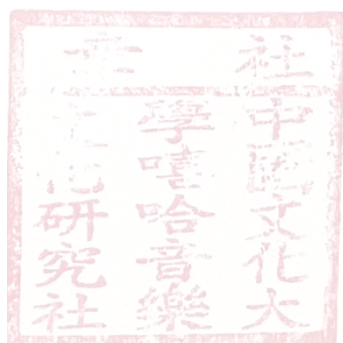 社章
中國文化大
學嘻哈音樂
研究社